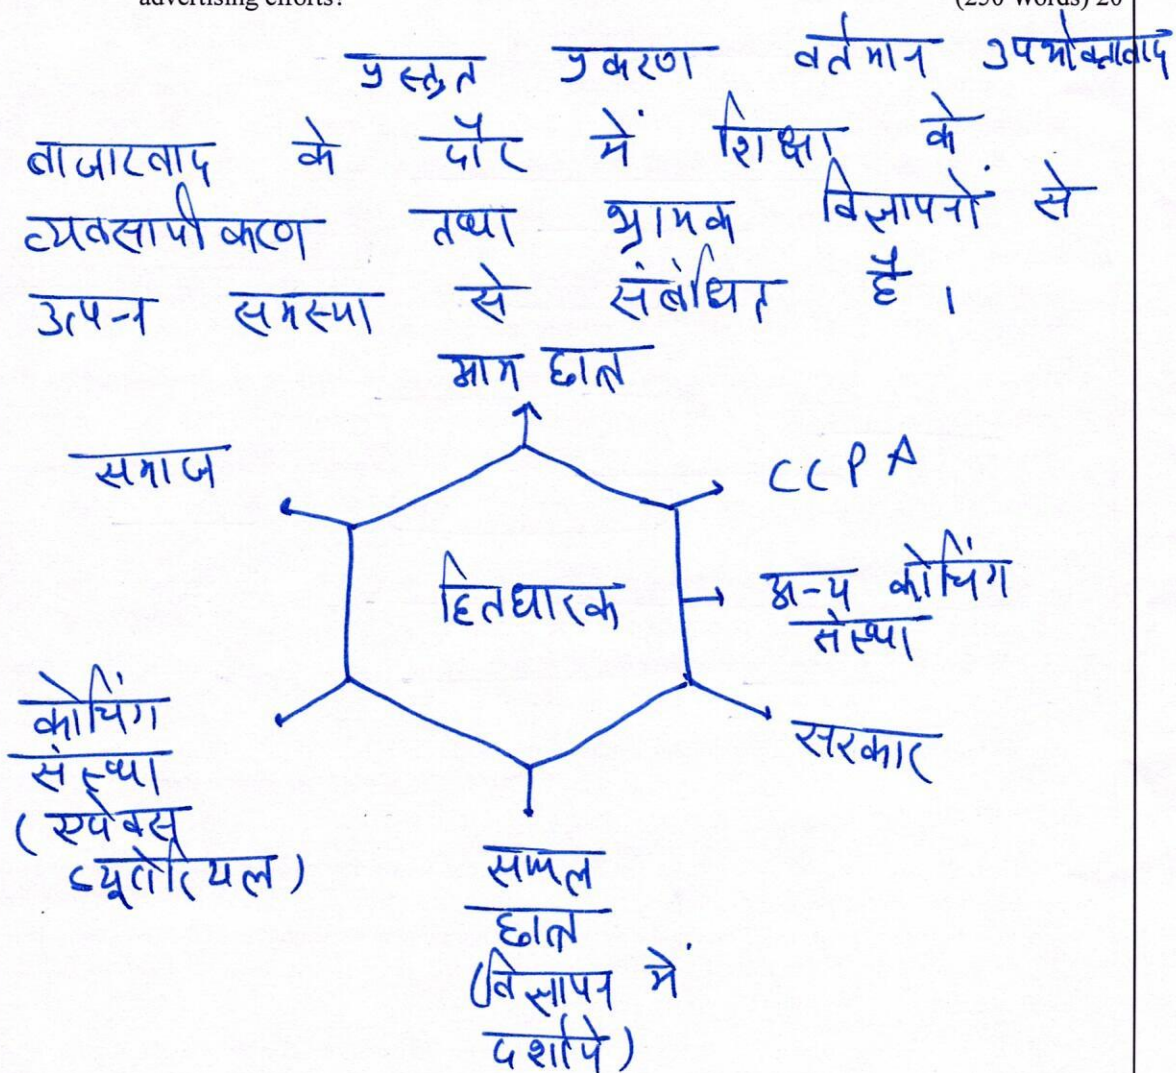 advertising efforts?
(250 words) 20
प्रस्तुत प्रकरण वर्तमान उपभोक्तावाद
बाजारवाद के दौर में शिक्षा के
व्यवसायीकरण तथा भ्रामक विज्ञापनों से
उत्पन्न समस्या से संबंधित है।
आम छात्र
समाज
CCPA
हितधारक
अन्य कोचिंग
संस्था
कोचिंग
संस्था
(एपेक्स
ट्यूटोरियल)
सरकार
सफल
छात्र
(विज्ञापन में
दर्शाये)